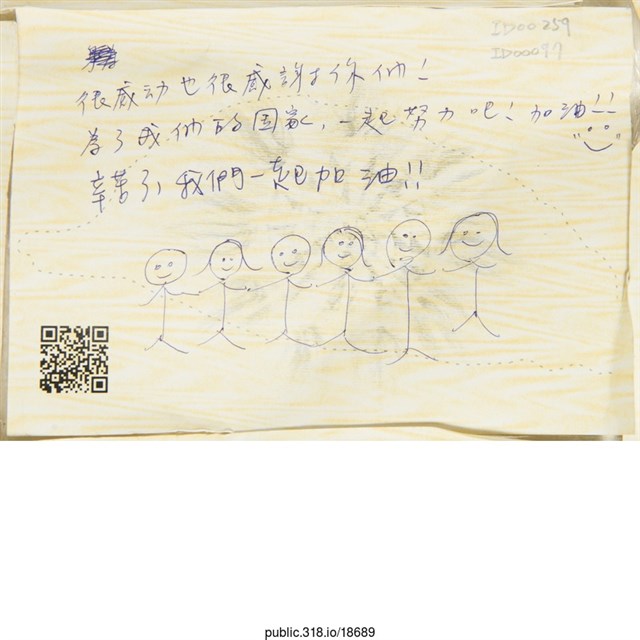 ID00259
ID00097
很感动也很感謝你们!
為了我们的国家,一起努力吧!加油!!
辛苦了,我們一起加油!!
public.318.io/18689